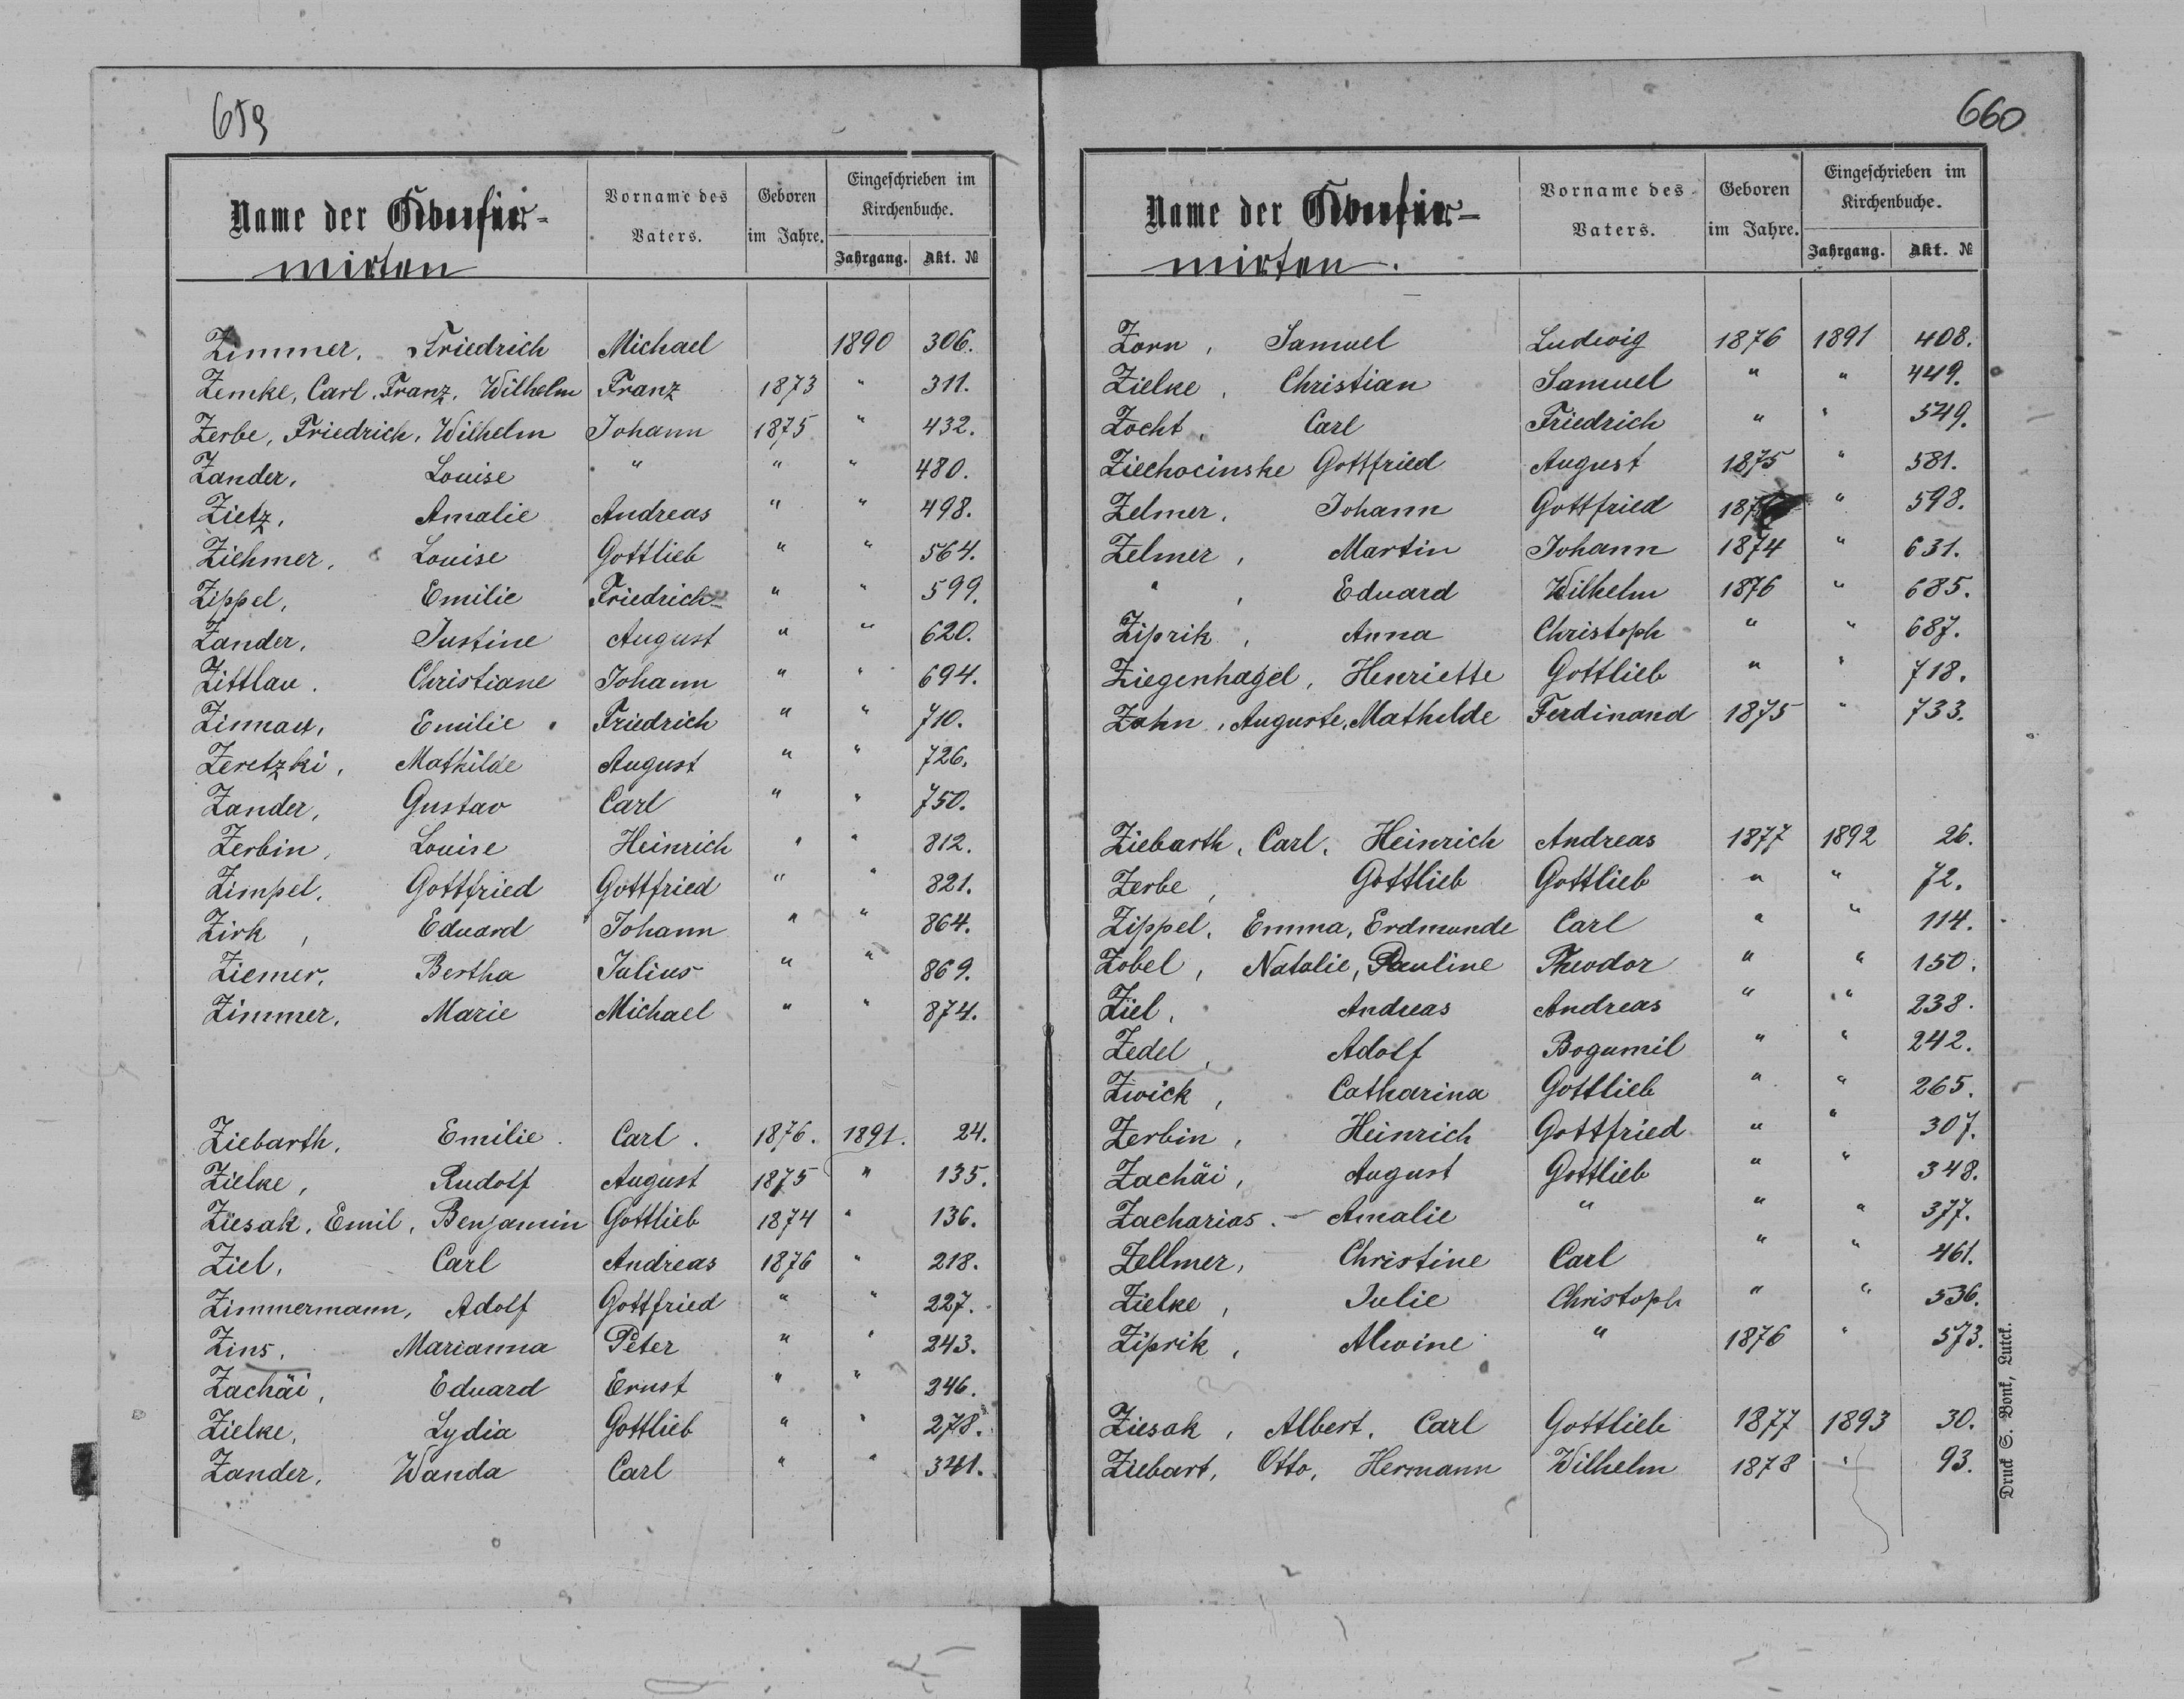 659
Name der Confir-
mirten
Vorname des Vaters.
Geboren im Jahre.
Eingeschrieben im Kirchenbuche.
Jahrgang. Akt. №
Zimmer, Friedrich Michael 1890 306.
Zemke, Carl, Franz, Wilhelm Franz 1873 " 311.
Zerbe, Friedrich, Wilhelm Johann 1875 " 432.
Zander, Louise " " " 480.
Zietz, Amalie Andreas " " 498.
Ziehmer, Louise Gottlieb " " 564.
Zippel, Emilie Friedrich " " 599.
Zander, Justine August " " 620.
Zittlau. Christiane Johann " " 694.
Emilie Friedrich " " 710.
Zeretzki, Mathilde August " " 726.
Zander, Gustav Carl " " 750.
Zerbin, Louise Heinrich " " 812.
Zimpel, Gottfried Gottfried " " 821.
Zirk, Eduard Johann " " 864.
Ziemer, Bertha Julius " " 869.
Zimmer, Marie Michael " " 874.
Ziebarth, Emilie. Carl. 1876. 1891. 24.
Zielke, Rudolf August 1875 " 135.
Ziesak, Emil, Benjamin Gottlieb 1874 " 136.
Ziel, Carl Andreas 1876 " 218.
Zimmermann, Adolf Gottfried " " 227.
Zins, Marianna Peter " " 243.
Zachäi, Eduard Ernst " " 246.
Zielke, Lydia Gottlieb " " 278.
Zander, Wanda Carl " " 341.
660
Name der Confir-
mirten.
Vorname des Vaters.
Geboren im Jahre.
Eingeschrieben im Kirchenbuche.
Jahrgang. Akt. №
Zorn, Samuel Ludwig 1876 1891 408.
Zielke, Christian Samuel " " 449.
Zocht, Carl Friedrich " " 549.
Ziechocinske Gottfried August 1875 " 581.
Zelmer, Johann Gottfried " 598.
Zelmer, Martin Johann 1874 " 631.
", Eduard Wilhelm 1876 " 685.
Ziprik, Anna Christoph " " 687.
Ziegenhagel, Henriette Gottlieb " " 718.
Zahn, Auguste, Mathilde Ferdinand 1875 " 733.
Ziebarth, Carl, Heinrich Andreas 1877 1892 26.
Zerbe, Gottlieb Gottlieb " " 72.
Zippel, Emma, Erdmunde Carl " " 114.
Zobel, Natalie, Pauline Theodor " " 150.
Ziel, Andreas Andreas " " 238.
Zedel, Adolf Bogumil " " 242.
Zwick, Catharina Gottlieb " " 265.
Zerbin, Heinrich Gottfried " " 307.
Zachäi, August Gottlieb " " 348.
Zacharias. - Amalie " " " 377.
Zellmer, Christine Carl " " 461.
Zielke, Julie Christoph " " 536.
Ziprik, Alwine " 1876 " 573.
Ziesak, Albert, Carl Gottlieb 1877 1893 30.
Ziebart, Otto, Hermann Wilhelm 1878 " 93.
Druck S. Bonk, Lutck.